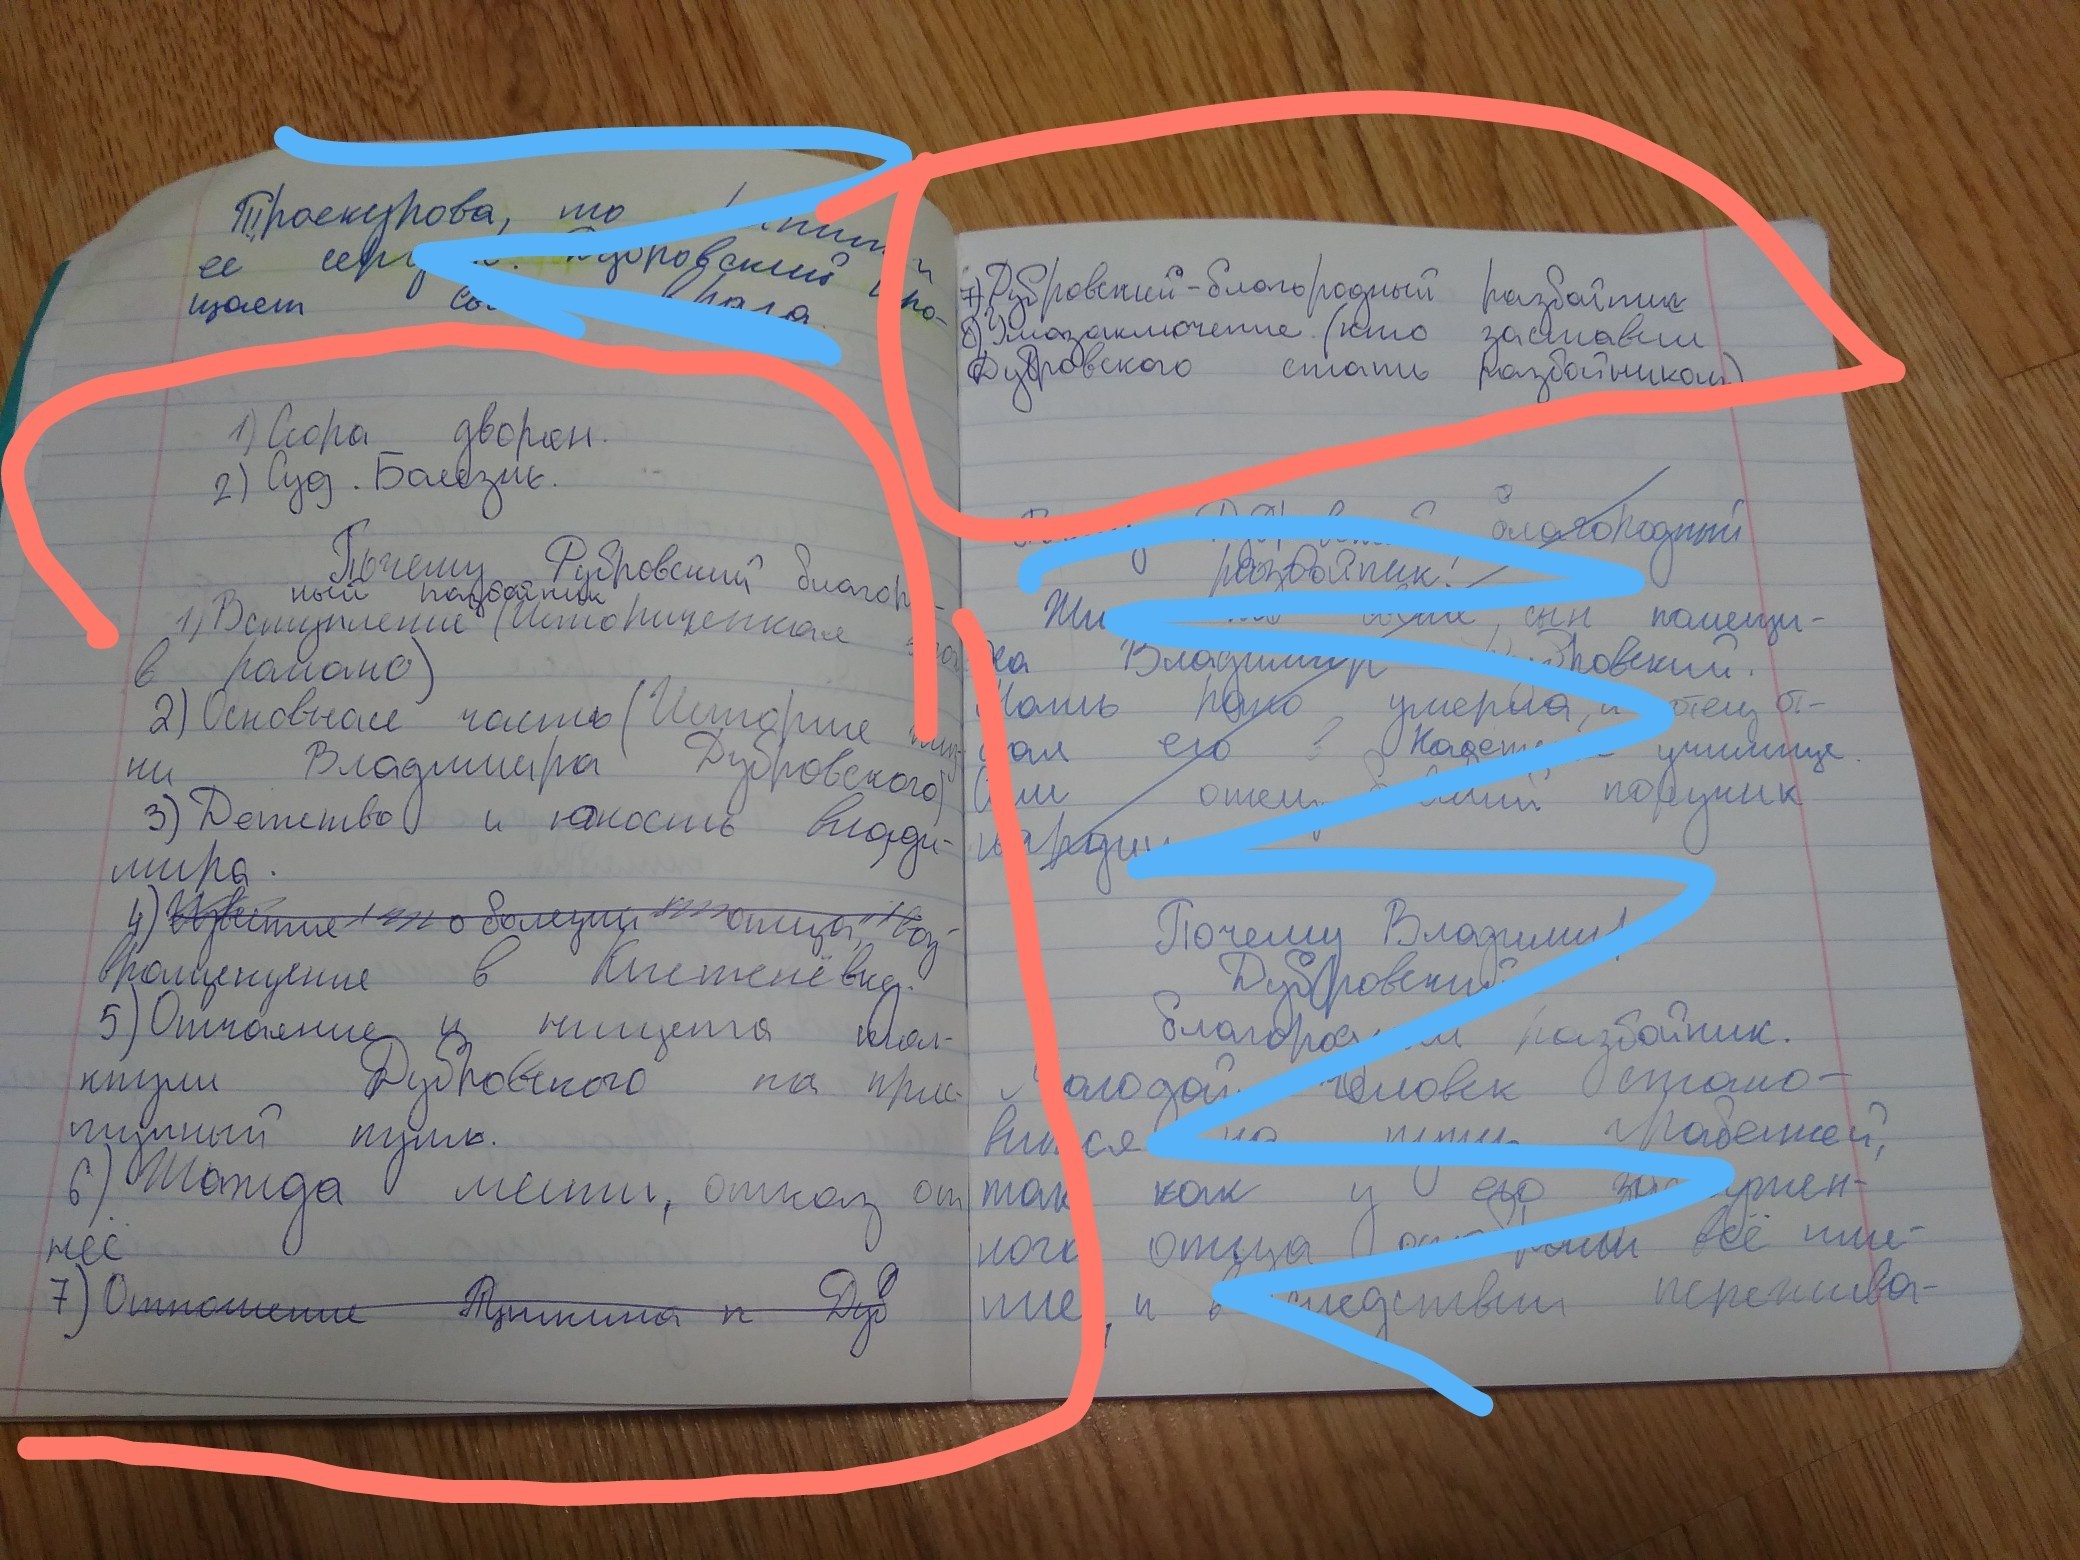 Троекурова, то
ее Дубровский про-
щает врага.
1) Ссора дворян.
2) Суд. Болезнь.
Почему Дубровский благород-
ный разбойник
1) Вступление (Историческая
в романе)
2) Основная часть (История жиз-
ни Владимира Дубровского)
3) Детство и юность Влади-
мира.
4) о болезни отца, воз-
вращение в Кистенёвка.
5) Отчаяние и нищета тол-
кнули Дубровского на прес-
тупный путь.
6) Жажда мести, отказ от
неё
7) Отношение Пушкина к Дуб
7) Дубровский-благородный разбойник
8) Умозаключение (кто заставил
Дубровского стать разбойником)
благородный
разбойник!
сын помещи-
ка Владимир Дубровский.
Мать рано умерла, и отец от-
дал его ? Кадетс училище.
Сам отец поручик
гвардии
Почему Владимир
Дубровский
разбойник.
Молодой человек стано-
вится на путь грабежей,
так как у его
ного отца отобрали всё име-
ние, и вследствии пережива-